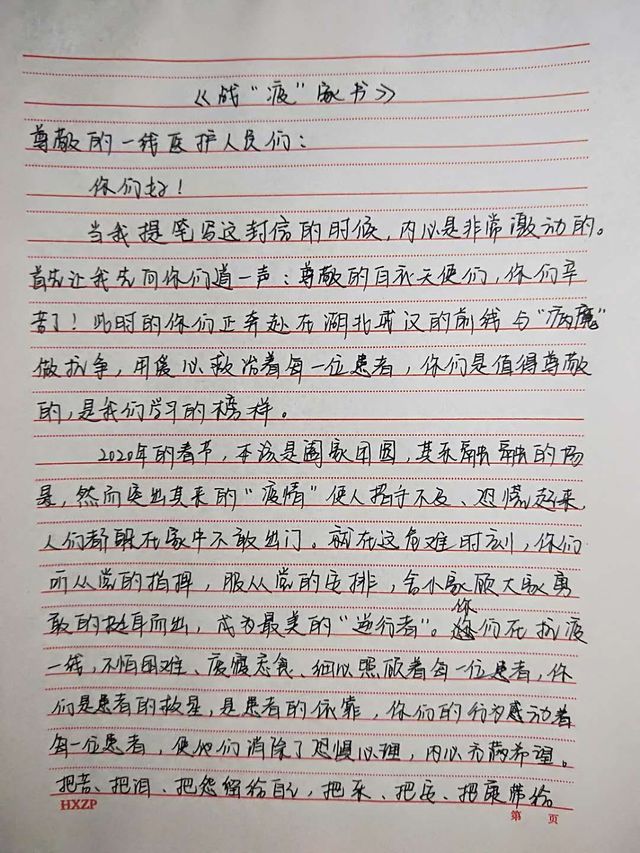 《战“疫”家书》
尊敬的一线医护人员们：
你们好！
当我提笔写这封信的时候，内心是非常激动的。
首先让我先向你们道一声：尊敬的白衣天使们，你们辛
苦了！此时的你们正奔赴在湖北武汉的前线与“病魔”
做抗争，用爱心救治着每一位患者，你们是值得尊敬
的，是我们学习的榜样。
2020年的春节，本该是阖家团圆，其乐融融的场
景，然而突出其来的“疫情”使人措手不及、恐慌起来，
人们都躲在家中不敢出门。就在这危难时刻，你们
听从党的指挥，服从党的安排，舍小家顾大家勇
敢的挺身而出，成为最美的“逆行者”。你们在抗疫
一线，不怕困难、废寝忘食、细心照顾着每一位患者，你
们是患者的救星，是患者的依靠，你们的行为感动着
每一位患者，使他们消除了恐惧心理，内心充满希望。
把苦、把泪、把怨留给自己，把乐、把安、把康带给
HXZP
第 页